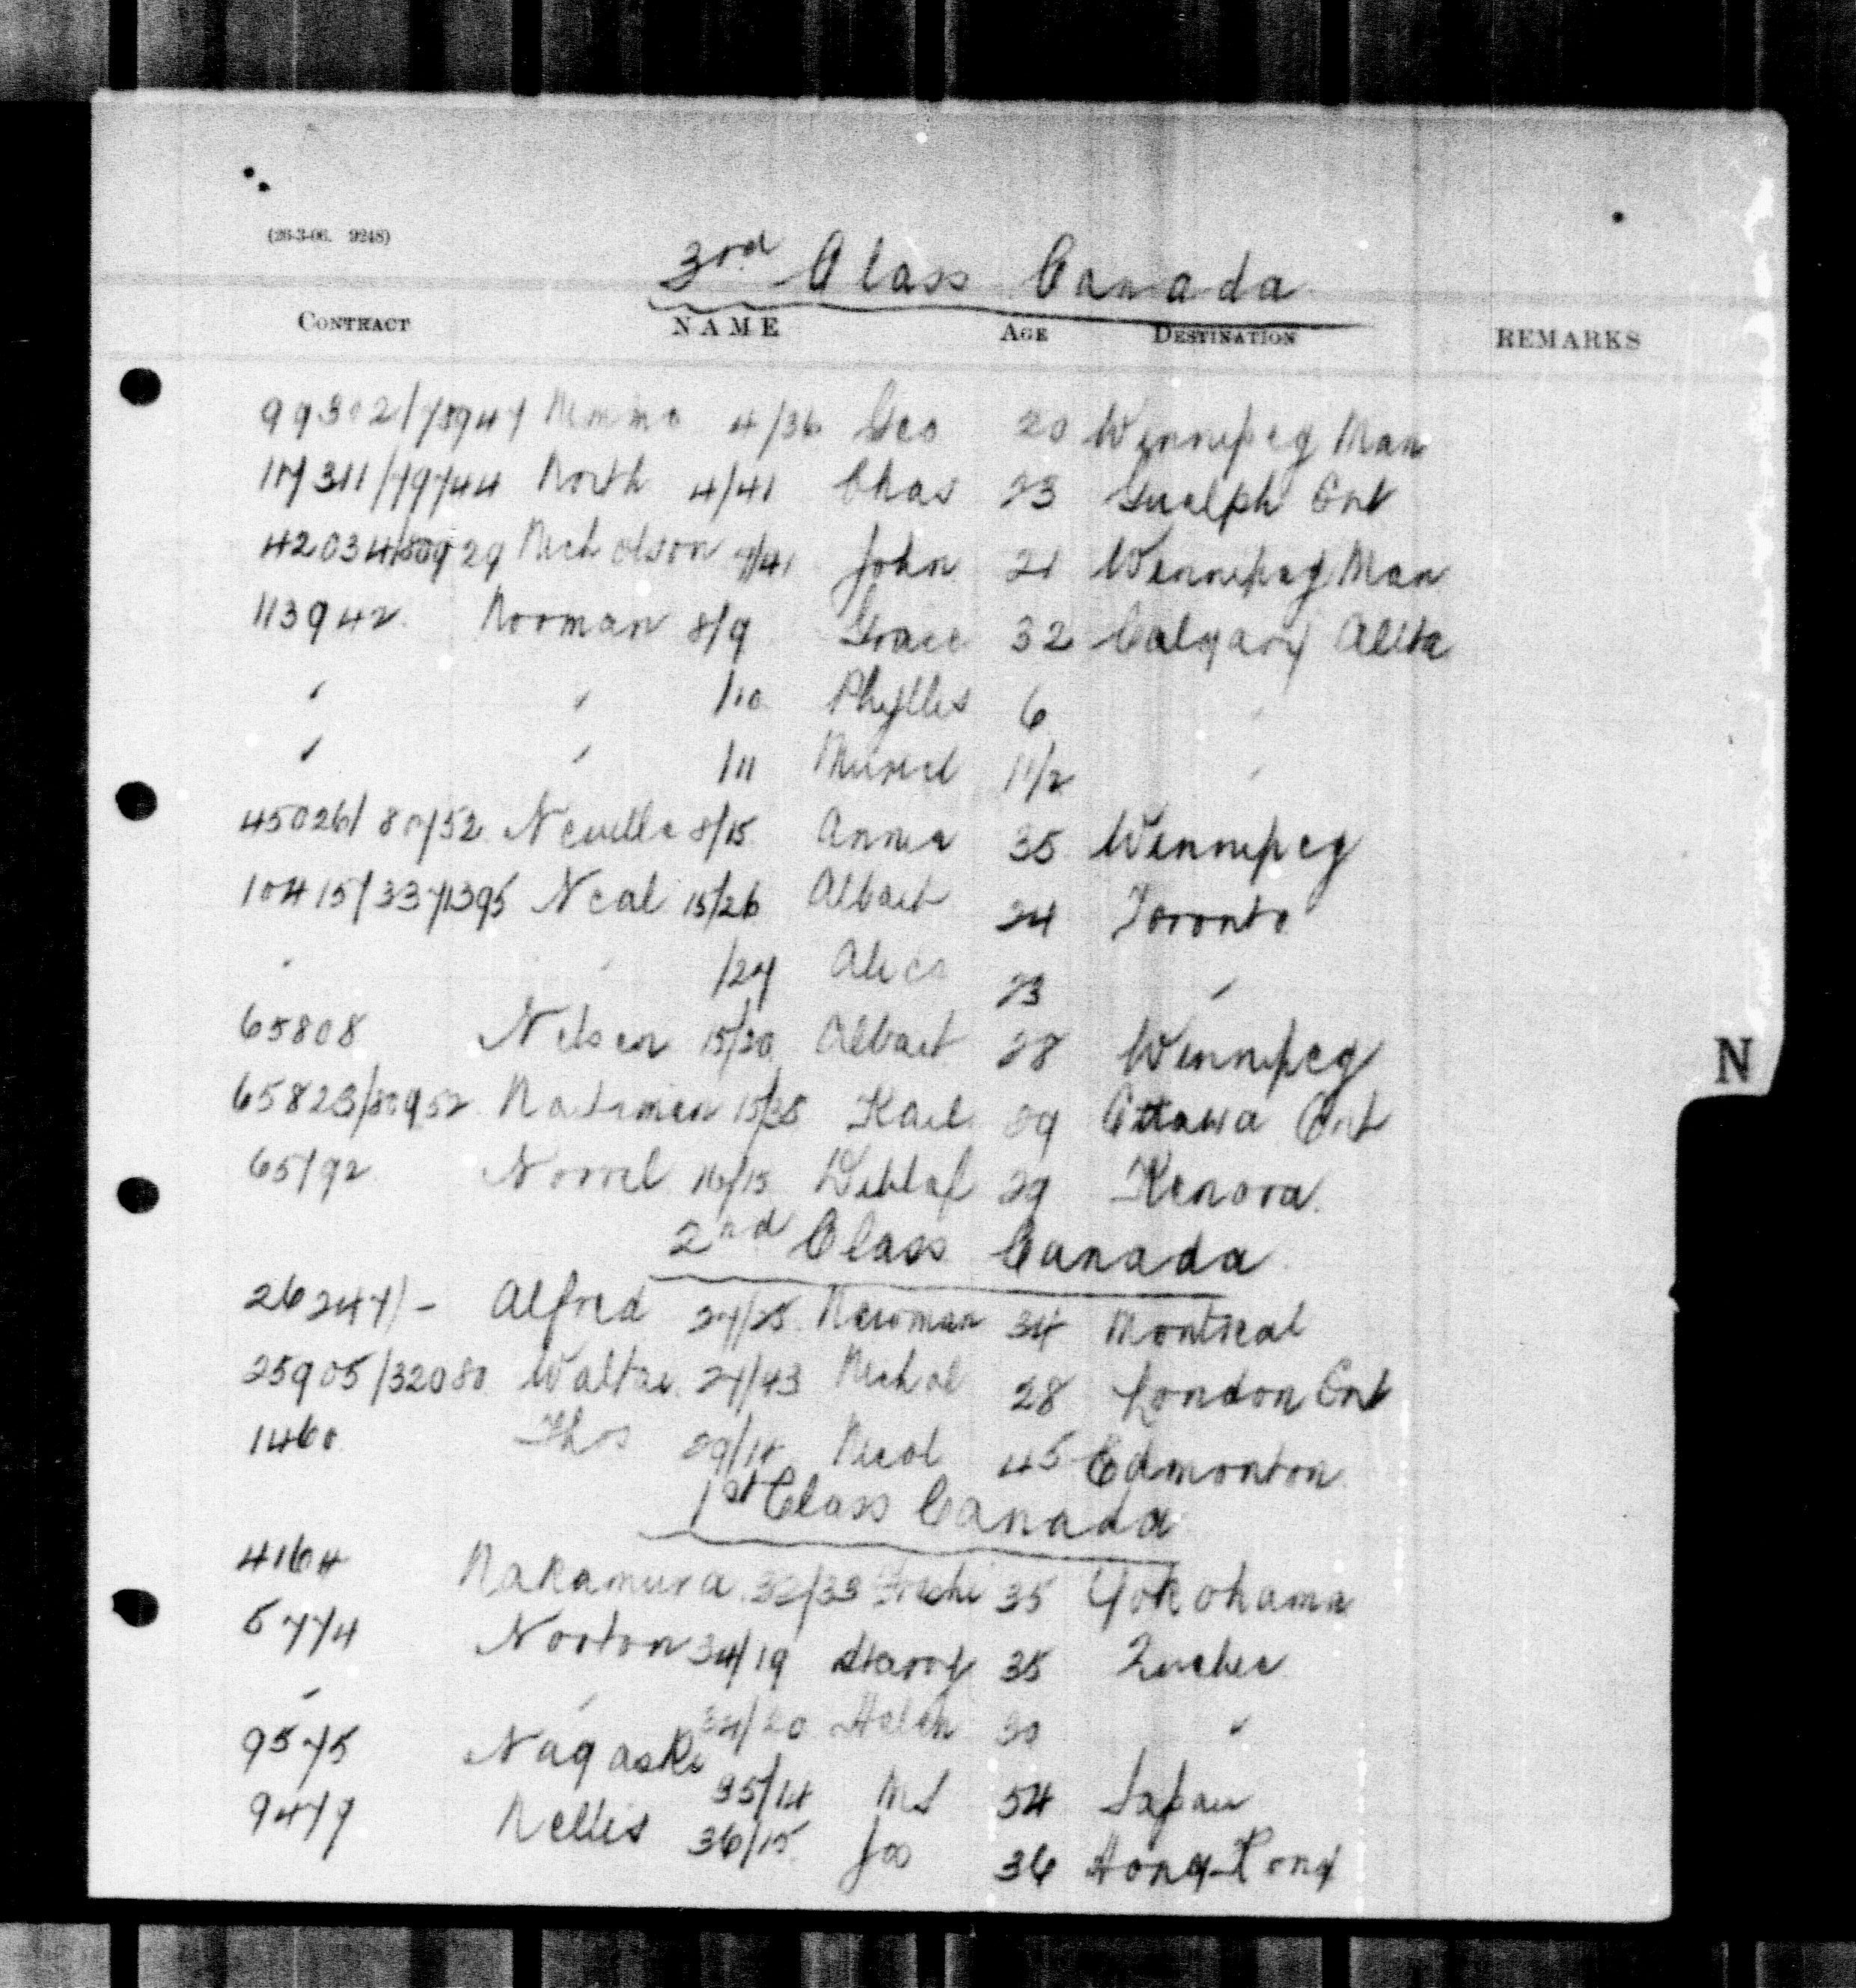 (26-3-06. 9248)
3rd Class Canada
CONTRACT NAME AGE DESTINATION REMARKS
99302/78947 4/36 Geo 20 Winnipeg Man
17311/79744 North 4/41 Chas 23 Guelph Ont
42034/80929 Nicholson 7/41 John 21 Winnipeg Man
113942 Norman 8/9 Grace 32 Calgary Allta
" " /10 Phyllis 6 "
" " /11 Muriel 11/2 "
45026/80752 Neville 8/15 Annie 35 Winnipeg
10415/331395 Neal 15/26 Albert 24 Toronto
" " /27 Alice 23 "
65808 Nelsen 15/20 Albert 28 Winnipeg
65823/80952 15/35 Karl 29 Ottawa Ont
65792 Norrel 16/15 Detlaf 29 Kenora
2nd Class Canada
26247/- Alfred 27/25 Newman 34 Montreal
25905/32080 Walter 27/43 Nichol 28 London Ont
1460 Thos 29/18 Nicol 45 Edmonton
1st Class Canada
4164 Nakamura 32/33 35 Yokohama
5774 Norton 34/19 Harry 35 Quebec
" " 34/20 Helen 30 "
9575 Nagaski 35/14 54 Japan
9479 Nellis 36/15 Jos 36 Hong-Kong
N